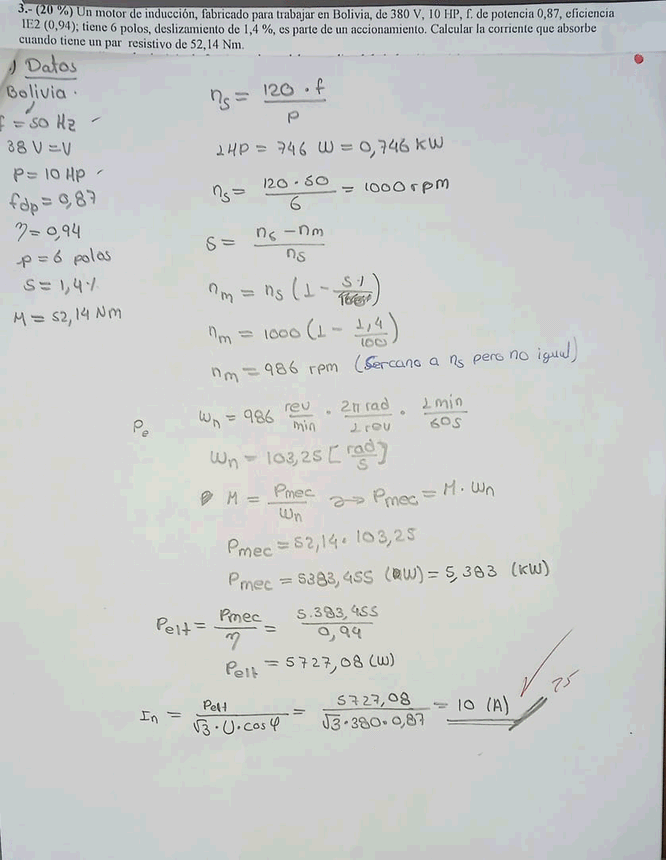 3.- (20 %) Un motor de inducción, fabricado para trabajar en Bolivia, de 380 V, 10 HP, f. de potencia 0,87, eficiencia
IE2 (0,94); tiene 6 polos, deslizamiento de 1,4 %, es parte de un accionamiento. Calcular la corriente que absorbe
cuando tiene un par resistivo de 52,14 Nm.
) Datos
Bolivia.
f = 50 Hz
38 V = V
P = 10 HP
fdp = 0,87
η = 0,94
p = 6 polos
S = 1,4 %
M = 52,14 Nm
ns = 120 · f / P
1 HP = 746 W = 0,746 KW
ns = 120 · 50 / 6 = 1000 rpm
S = ns - nm / ns
nm = ns (1 - S% / 100%)
nm = 1000 (1 - 1,4 / 100)
nm = 986 rpm (Sercano a ns pero no igual)
Pe
Wn = 986 rev/min · 2π rad / 1 rev · 1 min / 60 s
Wn = 103,25 [rad/s]
M = Pmec / Wn → Pmec = M · Wn
Pmec = 52,14 · 103,25
Pmec = 5383,455 (W) = 5,383 (KW)
Pelt = Pmec / η = 5.383,455 / 0,94
Pelt = 5727,08 (W)
In = Pelt / √3 · U · cos φ = 5727,08 / √3 · 380 · 0,87 = 10 (A)